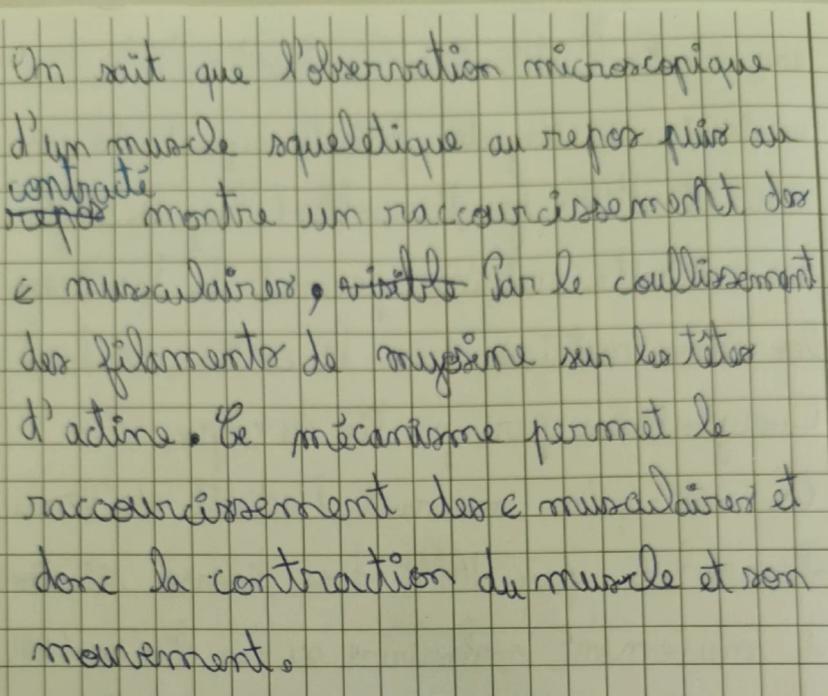 On sait que l'observation microscopique
d'un muscle squeletique au repos puis au
contracté
repos montre un raccourcissement des
c musculaires, visible Par le coullissement
des filaments de myosine sur les têtes
d'actine. Ce mécanisme permet le
raccourcissement des c musculaires et
donc la contraction du muscle et son
mouvement.